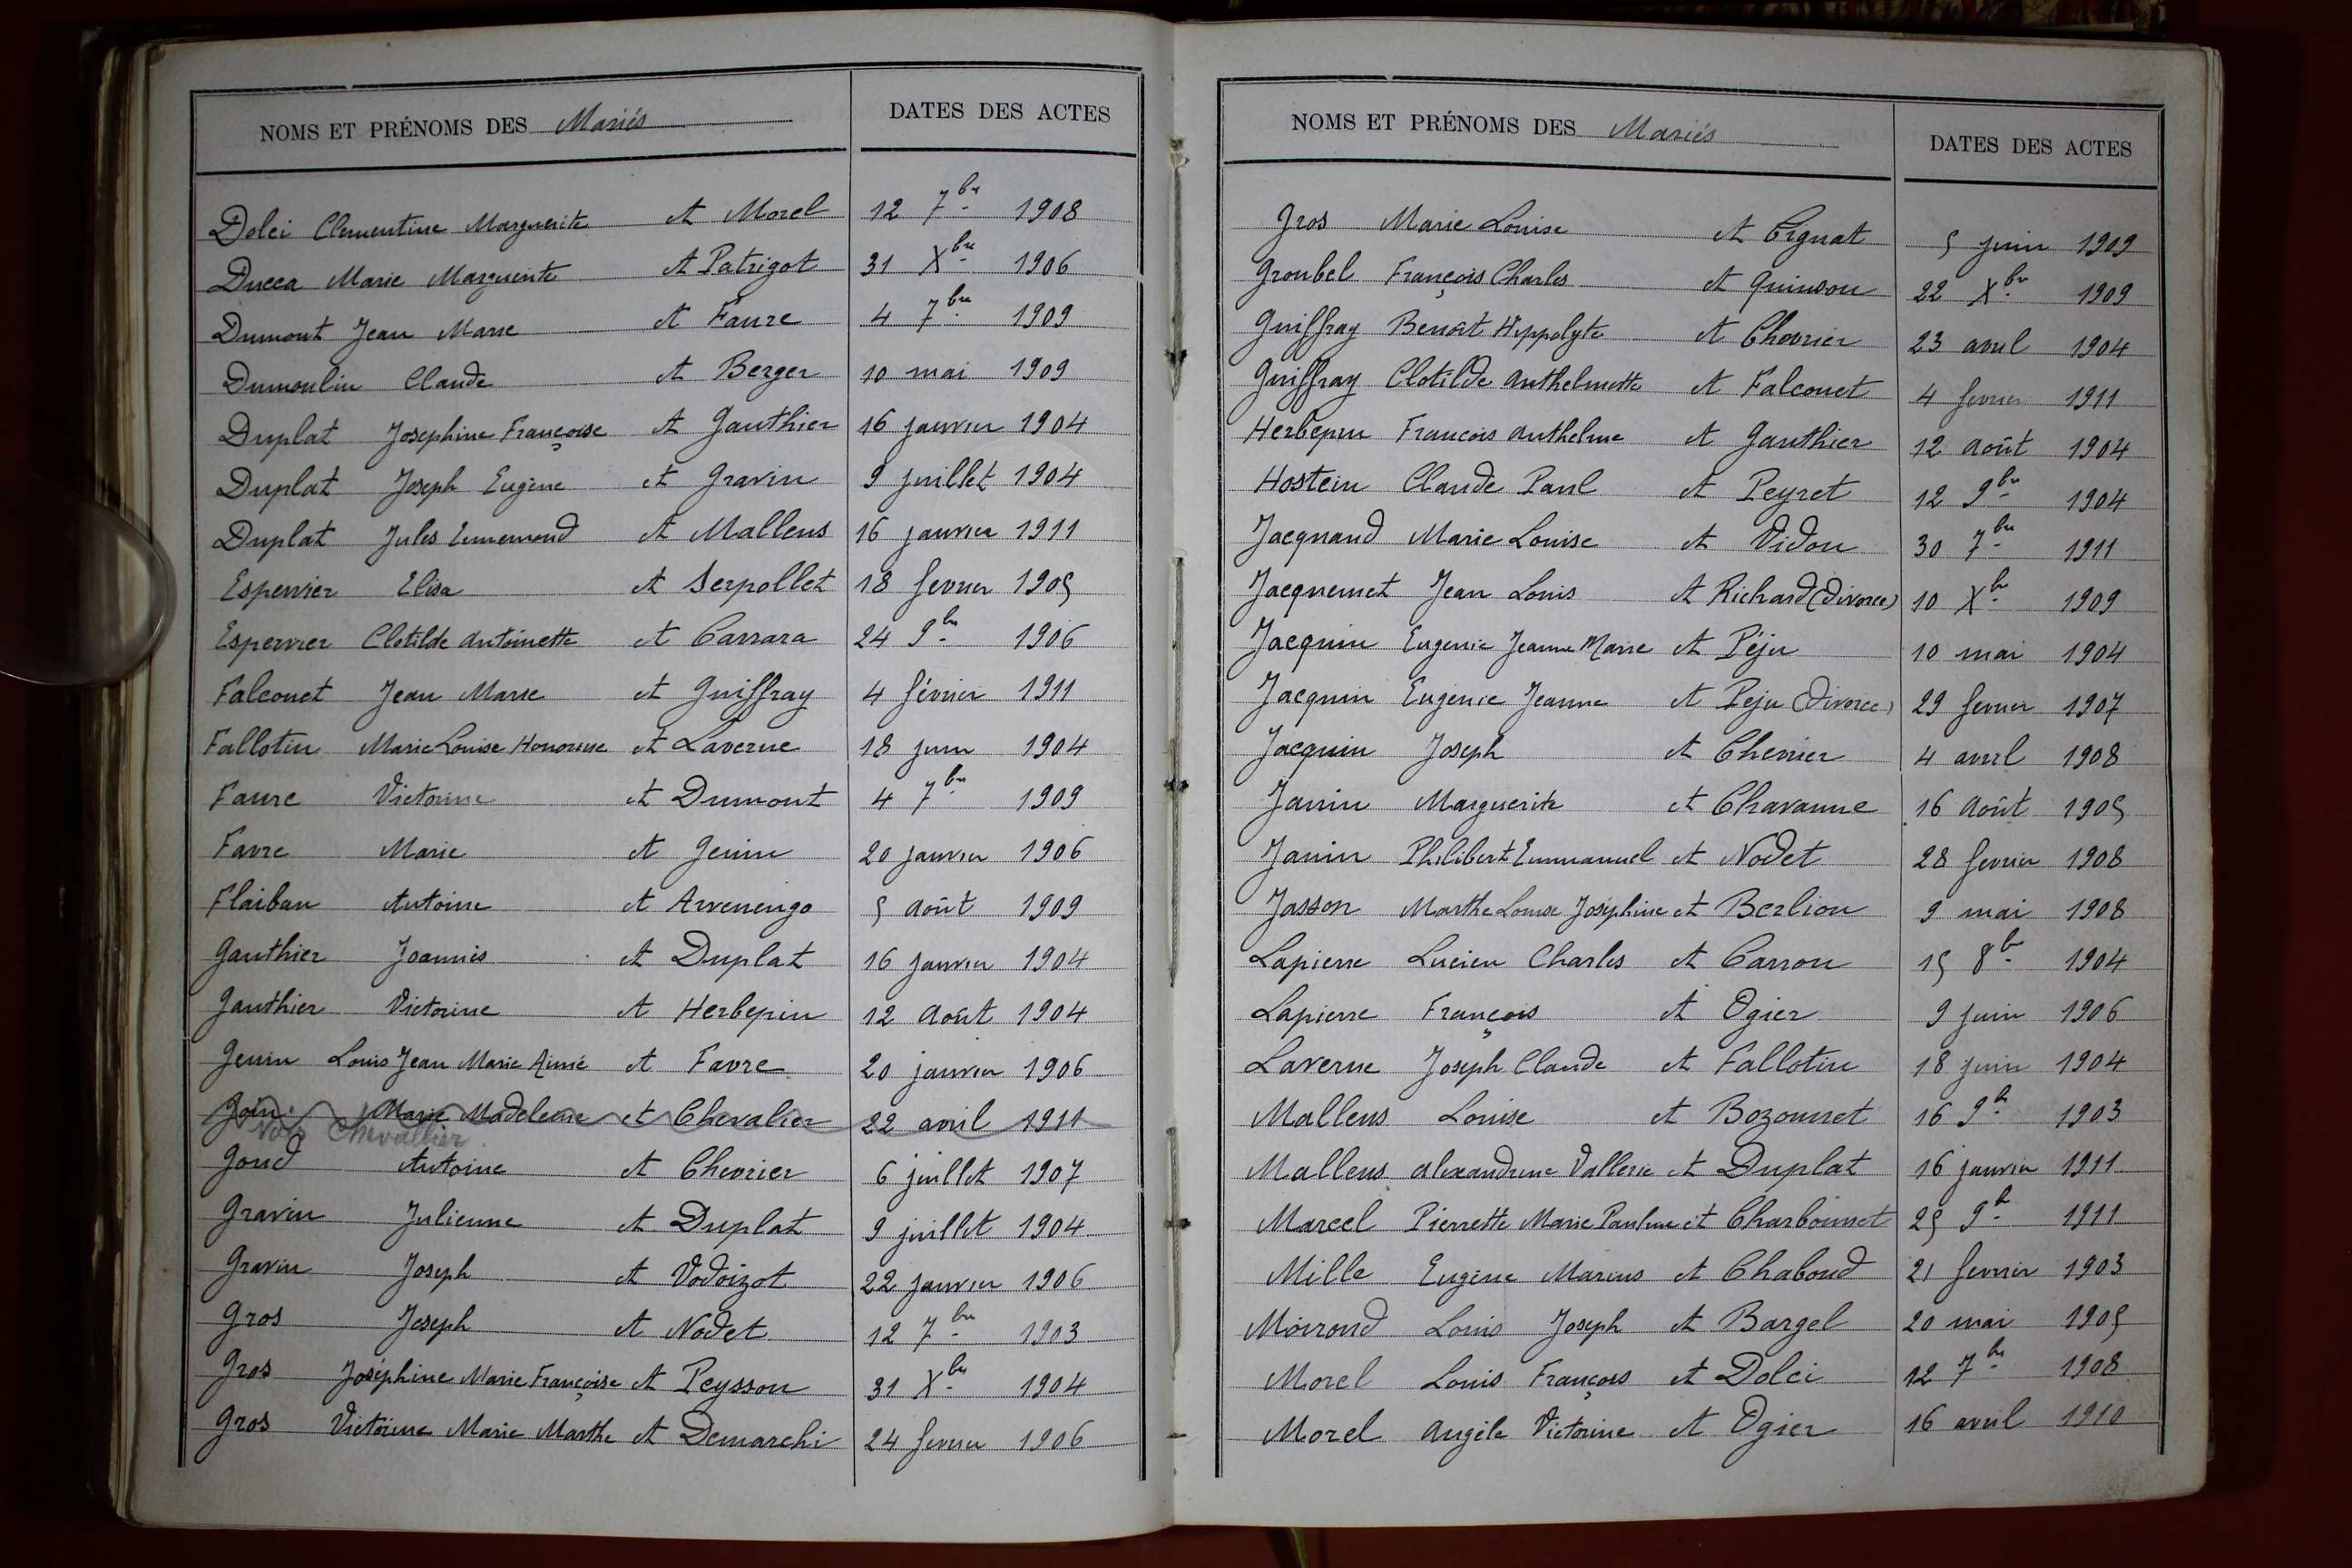 NOMS ET PRÉNOMS DES Mariés DATES DES ACTES
Dolci Clementine Marguerite et Morel 12 7bre 1908
Ducca Marie Marguerite et Patrigot 31 Xbre 1906
Dumont Jean Marie et Faure 4 7bre 1909
Dumoulin Claude et Berger 10 mai 1909
Duplat Josephine Françoise et Gauthier 16 janvier 1904
Duplat Joseph Eugène et Gravin 9 juillet 1904
Duplat Jules Ennemond et Mallens 16 janvier 1911
Espervier Elisa et Serpollet 18 fevrier 1905
Espervier Clotilde Antoinette et Carrara 24 9bre 1906
Falconet Jean Marie et Guiffray 4 février 1911
Fallotin Marie Louise Honorine et Laverne 18 juin 1904
Faure Victorine et Dumont 4 7bre 1909
Favre Marie et Genin 20 janvier 1906
Flaiban Antoine et Arvenengo 5 août 1909
Gauthier Joannès et Duplat 16 janvier 1904
Gauthier Victorine et Herbepin 12 Août 1904
Genin Louis Jean Marie Aimé et Favre 20 janvier 1906
Goin Marie Madeleine et Chevalier 22 avril 1911
Voir Chevallier
Goud Antoine et Chevrier 6 juillet 1907
Gravin Julienne et Duplat 9 juillet 1904
Gravin Joseph et Vodoizot 22 janvier 1906
Gros Joseph et Nodet 12 7bre 1903
Gros Joséphine Marie Françoise et Peysson 31 Xbre 1904
Gros Victorine Marie Marthe et Demarchi 24 fevrier 1906
NOMS ET PRÉNOMS DES Mariés DATES DES ACTES
Gros Marie Louise et Cignat 5 juin 1909
Groubel François Charles et Quinson 22 Xbre 1909
Guiffray Benoît Hippolyte et Chevrier 23 avril 1904
Guiffray Clotilde Anthelmette et Falconet 4 fevrier 1911
Herbepin François Anthelme et Gauthier 12 août 1904
Hostein Claude Paul et Peyret 12 9bre 1904
Jacquand Marie Louise et Vidon 30 7bre 1911
Jacquemet Jean Louis et Richard (Divorce) 10 Xbre 1909
Jacquin Eugenie Jeanne Marie et Péju 10 mai 1904
Jacquin Eugénie Jeanne et Peju (Divorce) 29 fevrier 1907
Jacquin Joseph et Chevrier 4 avril 1908
Janin Marguerite et Chavanne 16 Août 1905
Janin Philibert Emmanuel et Nodet 28 fevrier 1908
Jasson Marthe Louise Joséphine et Berlion 9 mai 1908
Lapierre Lucien Charles et Carron 15 8bre 1904
Lapierre François et Ogier 9 juin 1906
Laverne Joseph Claude et Fallotin 18 juin 1904
Mallens Louise et Bozonnet 16 9b 1903
Mallens Alexandrine Vallerie et Duplat 16 janvier 1911
Marcel Pierrette Marie Pauline et Charbonnet 25 9b 1911
Mille Eugène Marius et Chaboud 21 fevrier 1903
Moiroud Louis Joseph et Bargel 20 mai 1905
Morel Louis François et Dolci 12 7bre 1908
Morel Angèle Victorine et Ogier 16 avril 1910